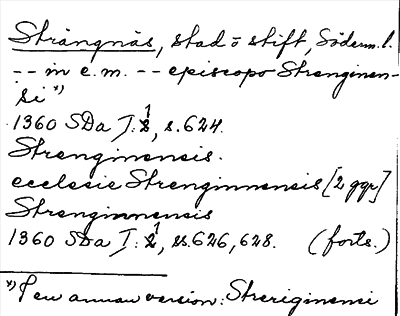 Strängnäs, stad o stift, Söderm. l.
-- in e.m. -- episcopo Strenginen-
si *)
1360 SDa I:1, s. 624.
Strenginensis.
ecclesie Strenginnensis [2 ggr]
Strenginnensis
1360 SDa I:1, ss. 626, 628. (forts.)
*) I en annan version: Streriginensi